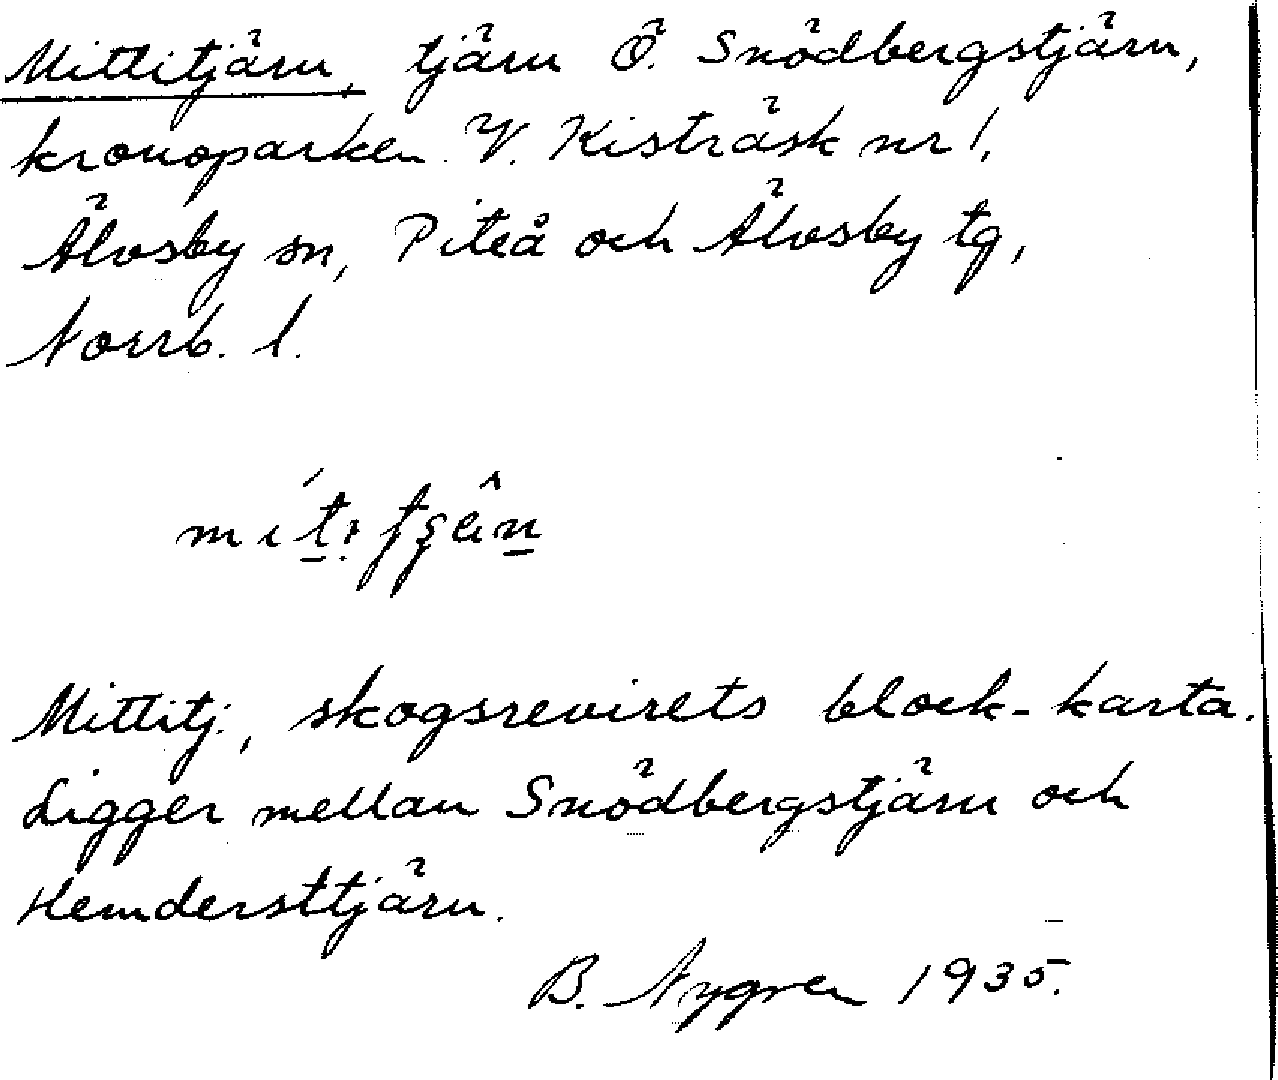 Mittitjärn, tjärn Ö. Snödbergstjärn,
kronoparken V. Kisträsk nr 1,
Älvsby sn, Piteå och Älvsby tg,
Norrb. l.
Mittitj., skogsrevirets block-karta.
Ligger mellan Snödbergstjärn och
Hemdersttjärn.
B. Nygren 1935.